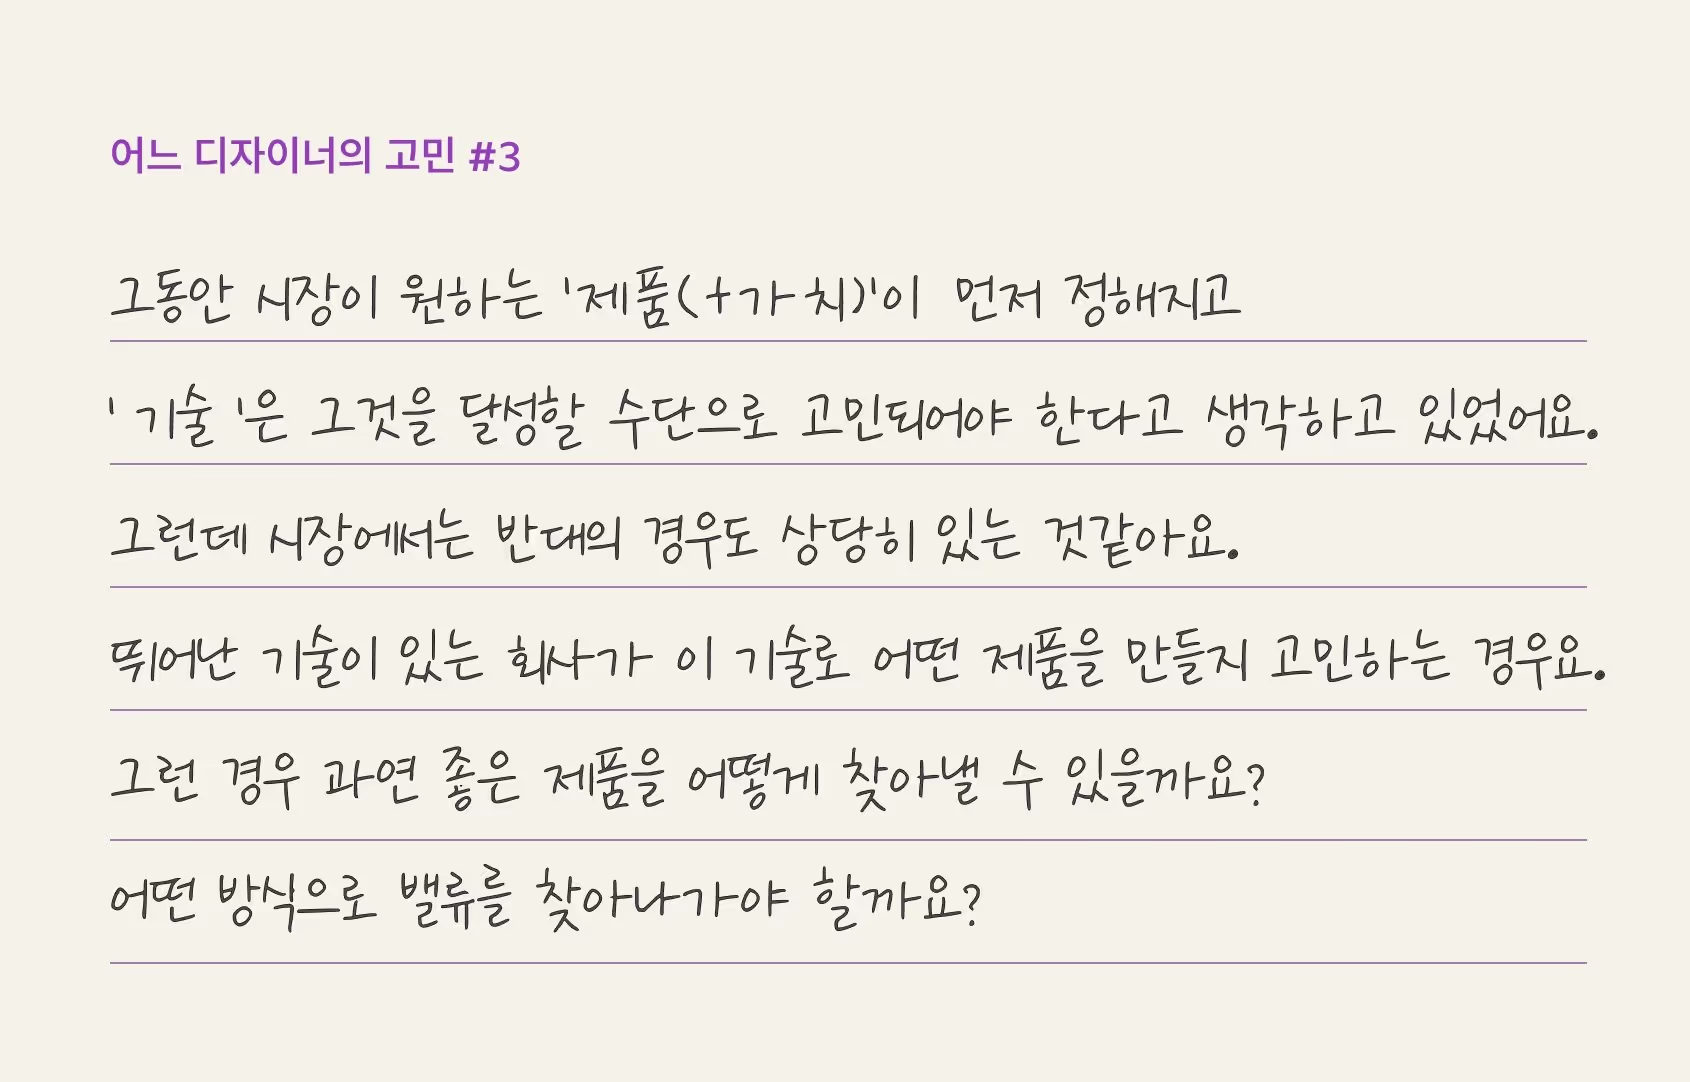 어느 디자이너의 고민 #3
그동안 시장이 원하는 '제품(+가치)'이 먼저 정해지고
'기술'은 그것을 달성할 수단으로 고민되어야 한다고 생각하고 있었어요.
그런데 시장에서는 반대의 경우도 상당히 있는 것같아요.
뛰어난 기술이 있는 회사가 이 기술로 어떤 제품을 만들지 고민하는 경우요.
그런 경우 과연 좋은 제품을 어떻게 찾아낼 수 있을까요?
어떤 방식으로 밸류를 찾아나가야 할까요?